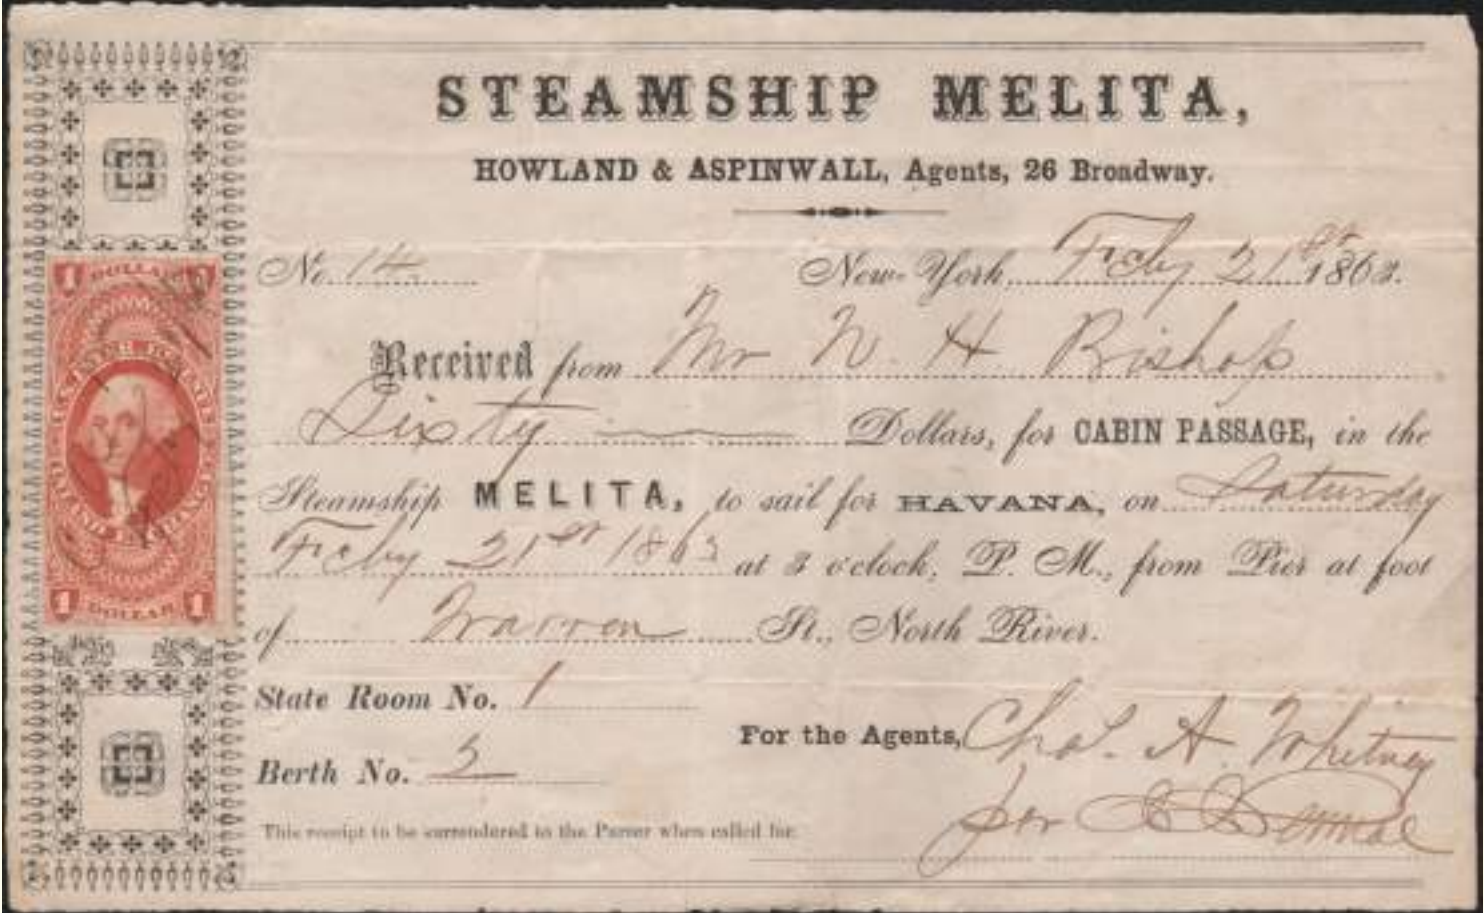 STEAMSHIP MELITA,
HOWLAND & ASPINWALL, Agents, 26 Broadway.
No. 14 New-York, Feby 21st 1863.
Received from Mr N. H Bishop
Sixty Dollars, for CABIN PASSAGE, in the
Steamship MELITA, to sail for HAVANA, on Saturday
Feby 21st 1863 at 3 o'clock, P. M., from Pier at foot
of Warren St., North River.
State Room No. 1
Berth No. 2
For the Agents, Chas. A. Whitney
per
This receipt to be surrendered to the Purser when called for.
1 DOLLAR
U.S. INTER. REVENUE
INLAND EXCHANGE
1 DOLLAR 1